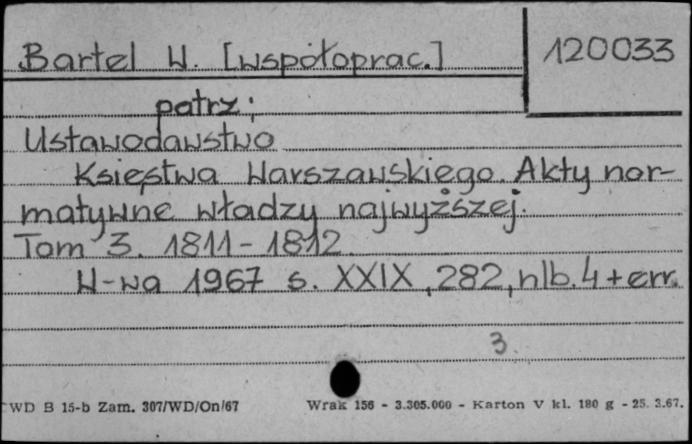 Bartel W. [współoprac.] 120033
patrz:
Ustawodawstwo
Księstwa Warszawskiego. Akty nor-
matywne władzy najwyższej.
Tom 3. 1811-1812.
W-wa 1967 s. XXIX, 282, nlb. 4 + err.
3.
WD B 15-b Zam. 307/WD/On/67 Wrak 156 - 3.305.000 - Karton V kl. 180 g - 25. 3.67.